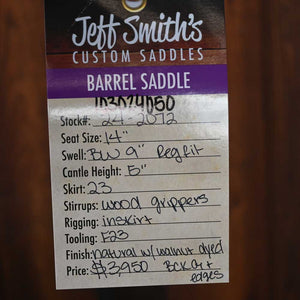 Jeff Smith's
CUSTOM SADDLES
BARREL SADDLE
103024050
Stock#: 24-2072
Seat Size: 14"
Swell: BW 9" Reg fit
Cantle Height: 5"
Skirt: 23
Stirrups: wood grippers
Rigging: inskirt
Tooling: F23
Finish: natural w/ walnut dyed
Price: $3,950 BCK Gt +
edges